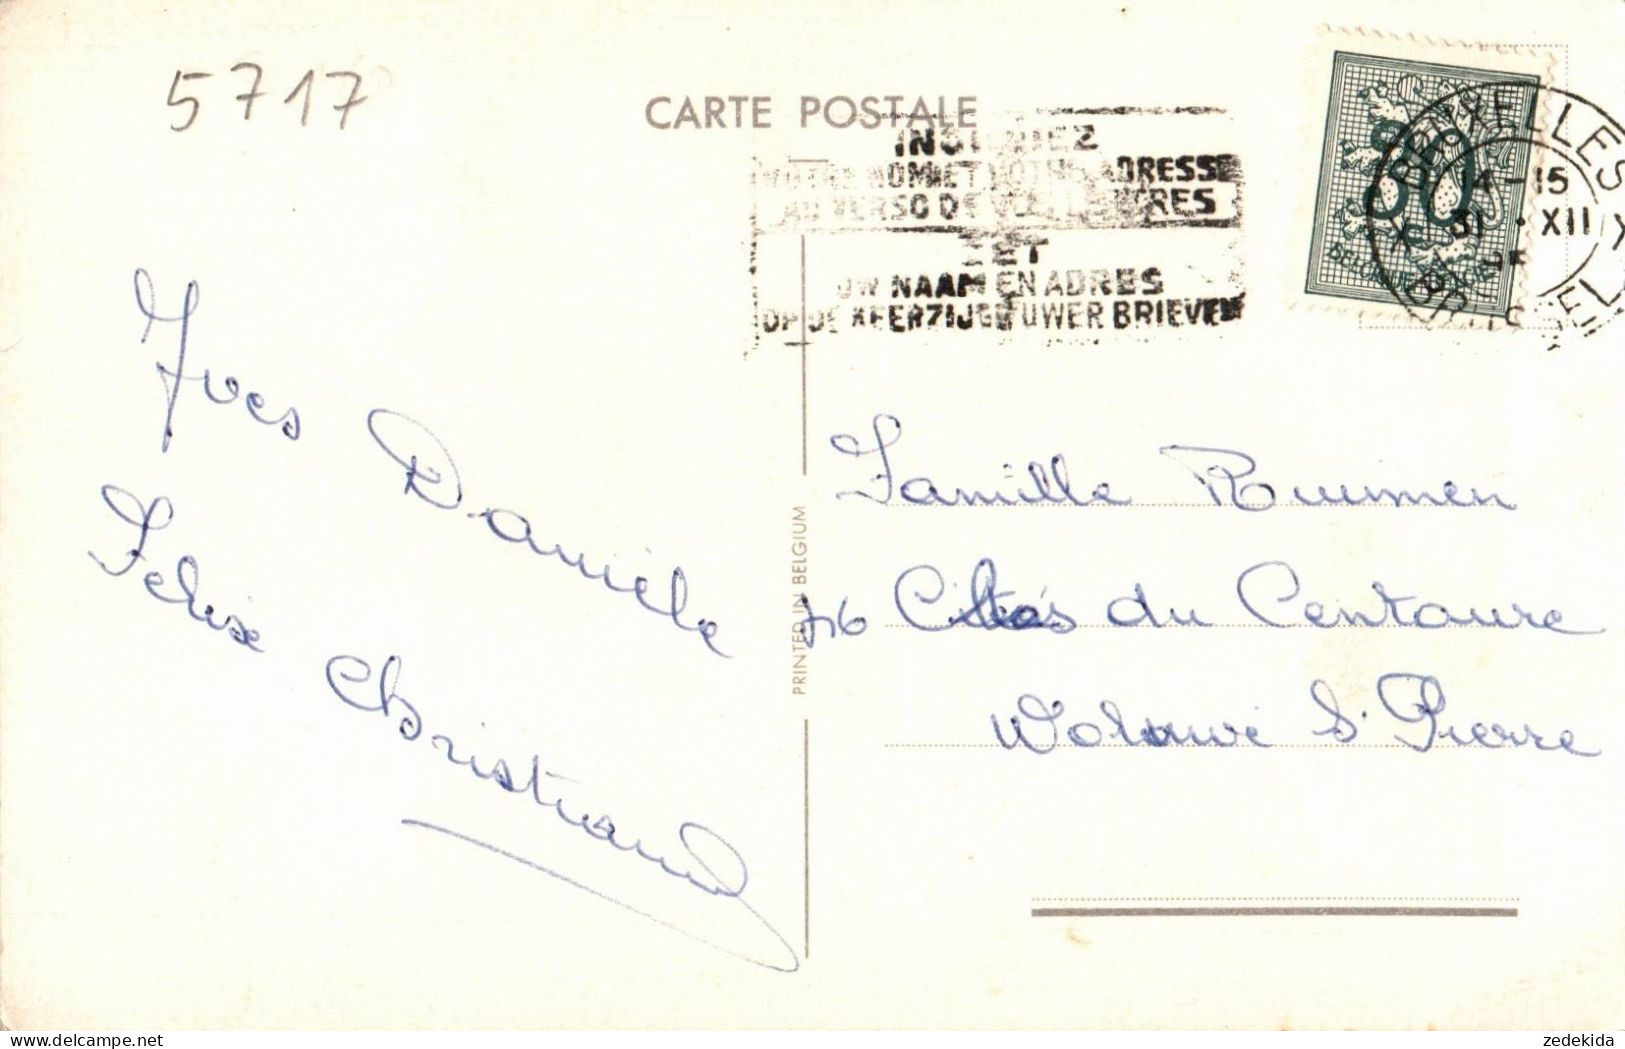 5717
CARTE POSTALE
INSCRIVEZ
VOTRE NOM ET VOTRE ADRESSE
AU VERSO DE VOS LETTRES
ZET
UW NAAM EN ADRES
OP DE KEERZIJDE UWER BRIEVEN
80
BELGIQUE
BRUXELLES X
14-15
31 · XII
BRUSSEL X
Yves Danièle
Felix Christian
PRINTED IN BELGIUM
Famille Rummen
76 Clos du Centaure
Woluwé S. Pierre
zedekida